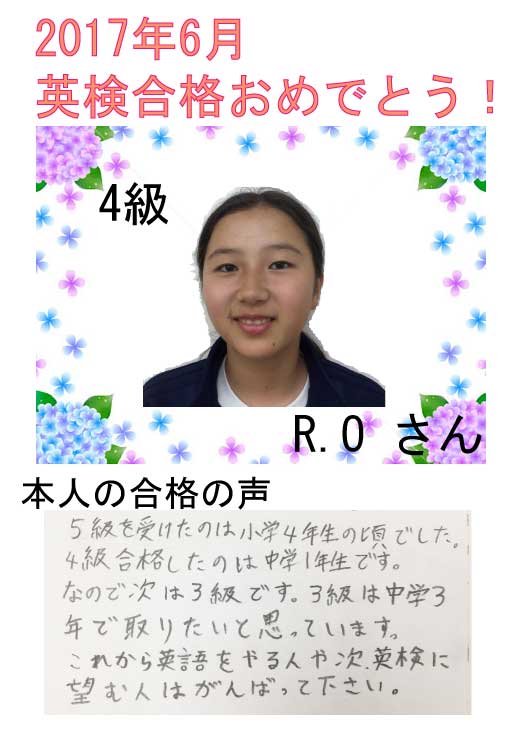 2017年6月
英検合格おめでとう！
4級
R.O さん
本人の合格の声
5級を受けたのは小学4年生の頃でした。
4級合格したのは中学1年生です。
なので次は3級です。3級は中学3
年で取りたいと思っています。
これから英語をやる人や次、英検に
望む人はがんばって下さい。